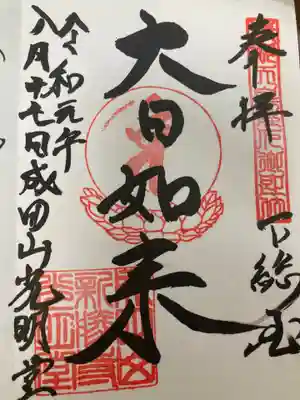 奉拝
下総国
大日如来
令和元年
八月十七日成田山光明堂